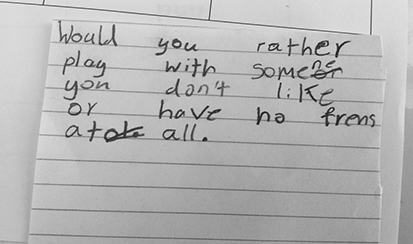 Would you rather
play with some
you don't like
or have no frens
at all.